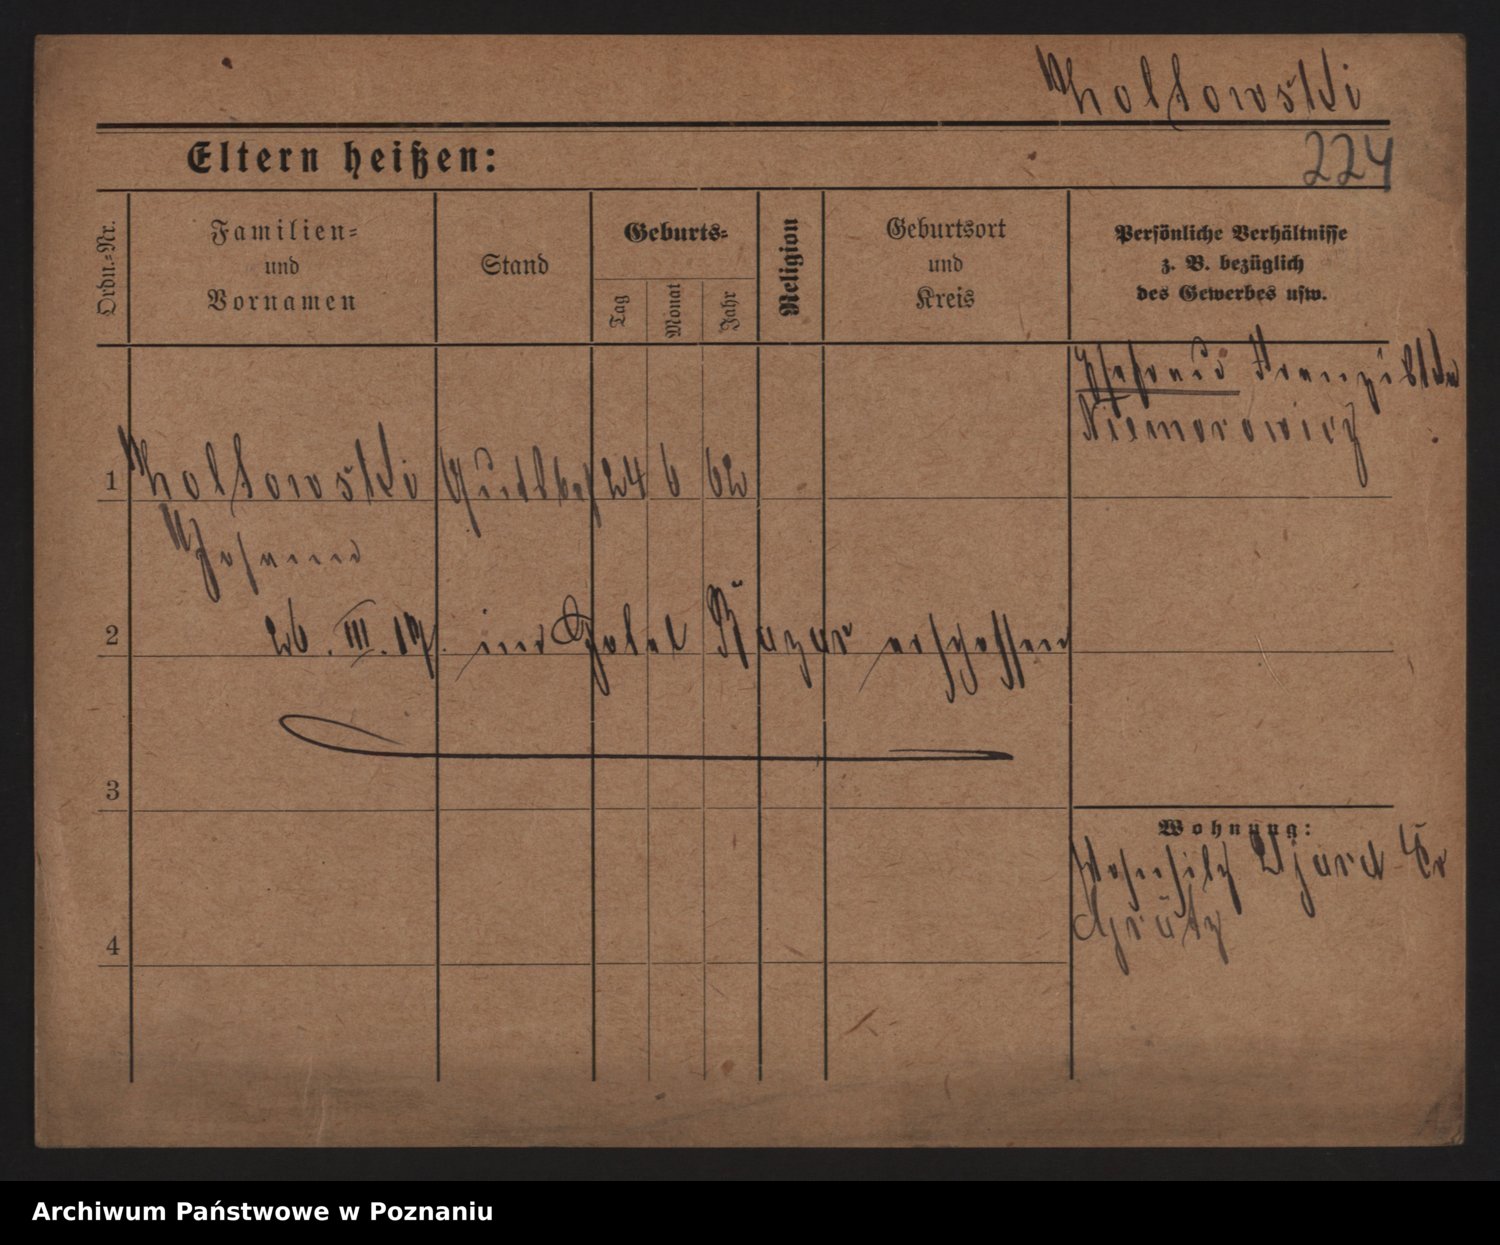 Zoltowski
224
Eltern heißen:
Ordn.=Nr.
Familien=
und
Vornamen
Stand
Geburts=
Tag
Monat
Jahr
Religion
Geburtsort
und
Kreis
Persönliche Verhältnisse
z. B. bezüglich
des Gewerbes usw.
Ehefrau Franziska
Niemorowicz
1
Zoltowski Gutsbes 24 6 62
Johann
2
26. III. 19. im Hotel Bazar erschossen
3
Wohnung:
Wohnsitz Kr
Grätz
4
Archiwum Państwowe w Poznaniu